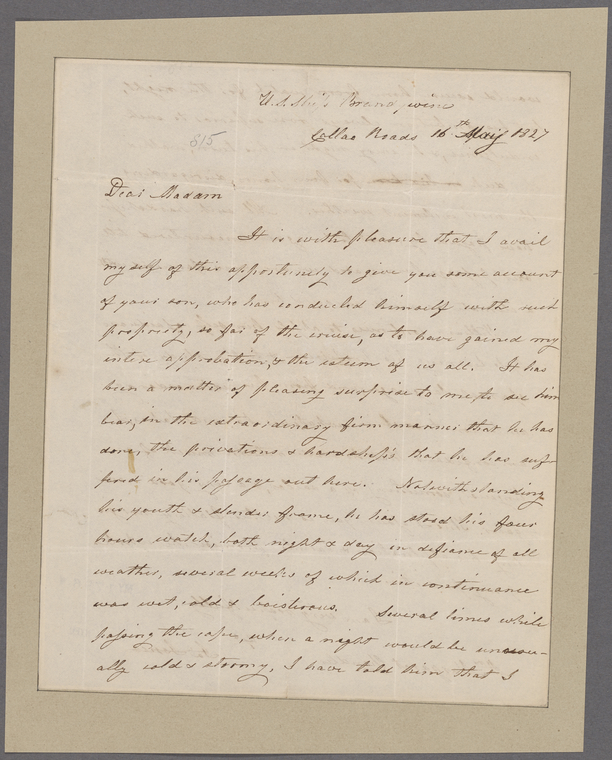 U.S. Ship Brandywine
Callao Roads 16th May 1827
815
Dear Madam
It is with pleasure that I avail
myself of this opportunity to give you some account
of your son, who has conducted himself with such
propriety, so far of the cruise, as to have gained my
intire approbation, & the esteem of us all. It has
been a matter of pleasing surprise to me, to see him
bear, in the extraordinary firm manner that he has
done, the privations & hardships that he has suf-
fered in his passage out here. Notwithstanding
his youth & slender frame, he has stood his four
hours watch, both night & day in defiance of all
weather, several weeks of which in continuance
was wet, cold & boisterous. Several times while
passing the cape, when a night would be unusu-
ally cold & stromy, I have told him that I